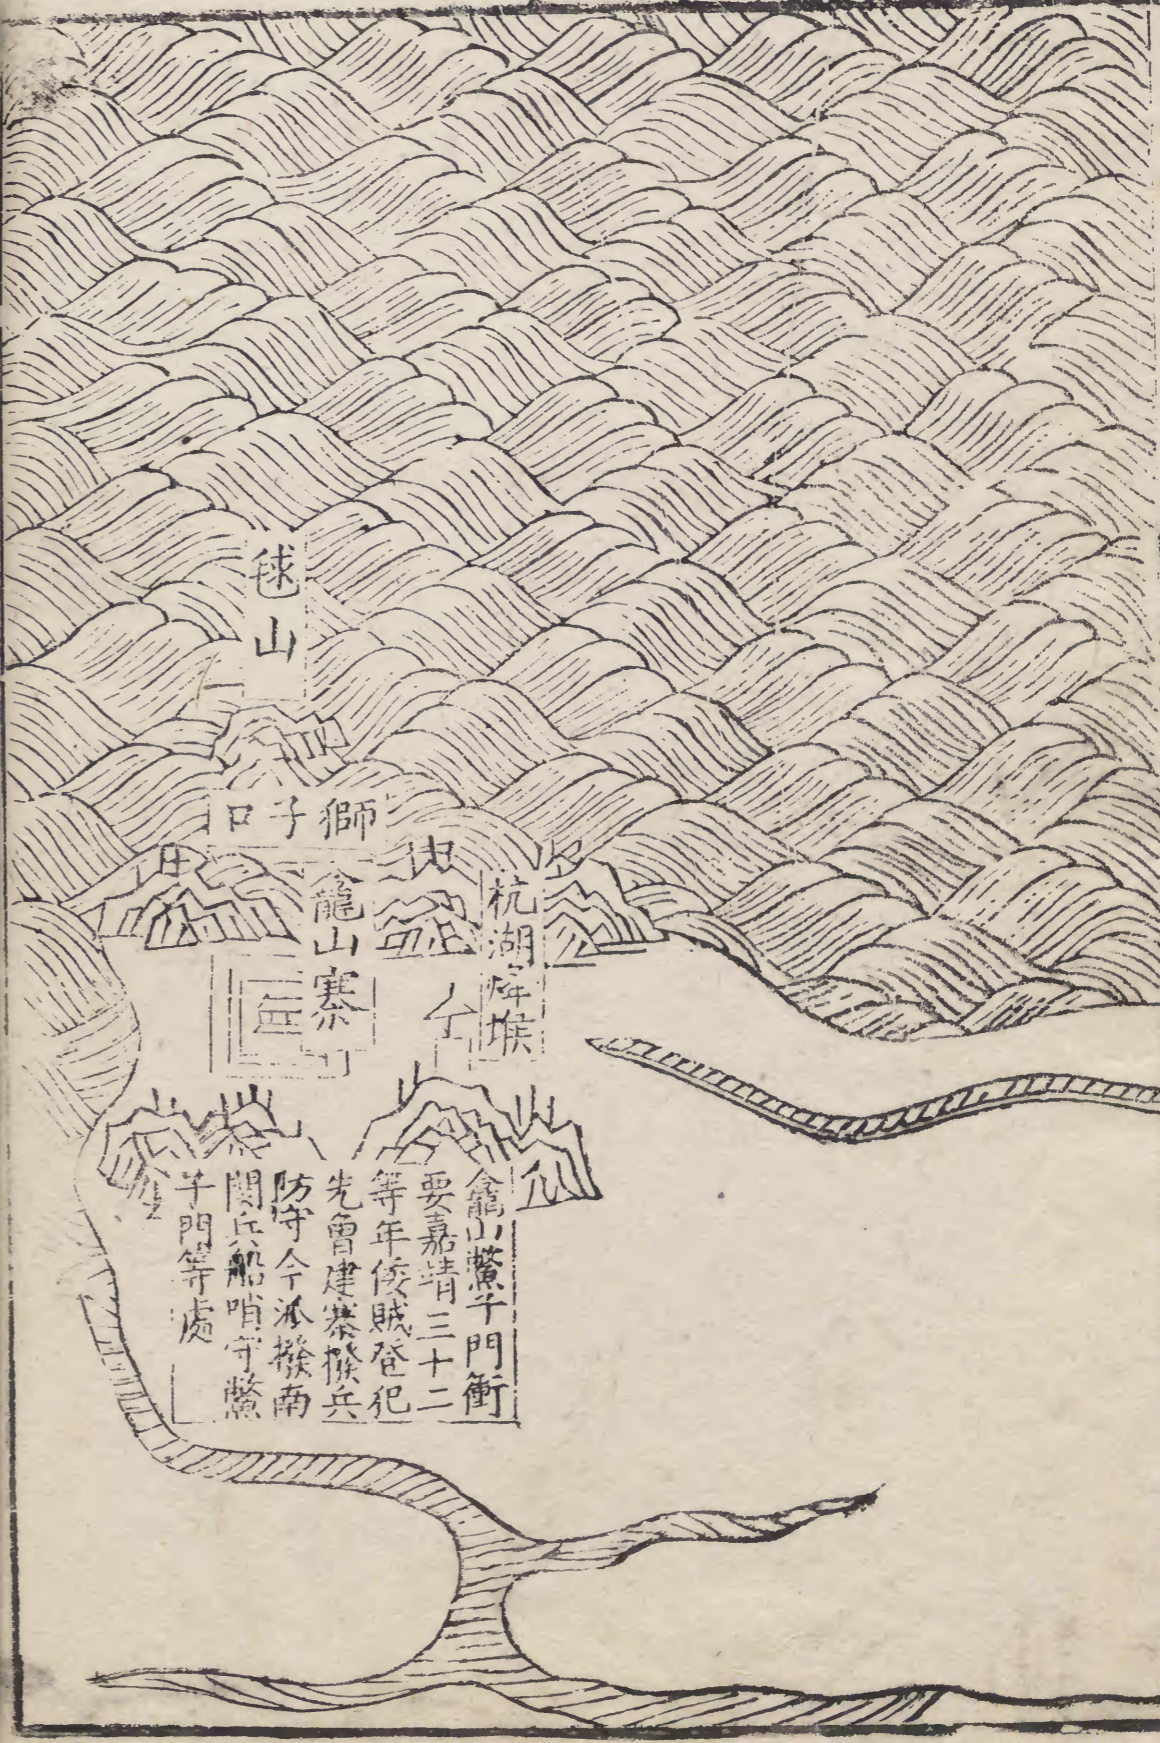 毬山
獅子口
龕山寨
杭湖
堠
龕山鱉子門衝
要嘉靖三十二
等年倭賊登犯
先曾建寨撥兵
防守今派撥南
關兵船哨守鱉
子門等處